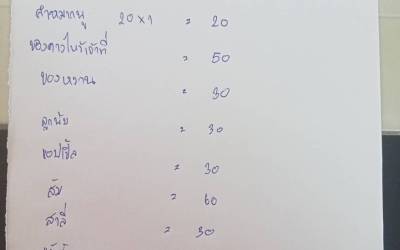 คำหมากพลู 20 × 1 = 20
ของคาวไหว้เจ้าที่ = 50
ของหวาน = 30
ลูกพับ = 30
แอปเปิ้ล = 30
ส้ม = 60
สาลี่ = 30